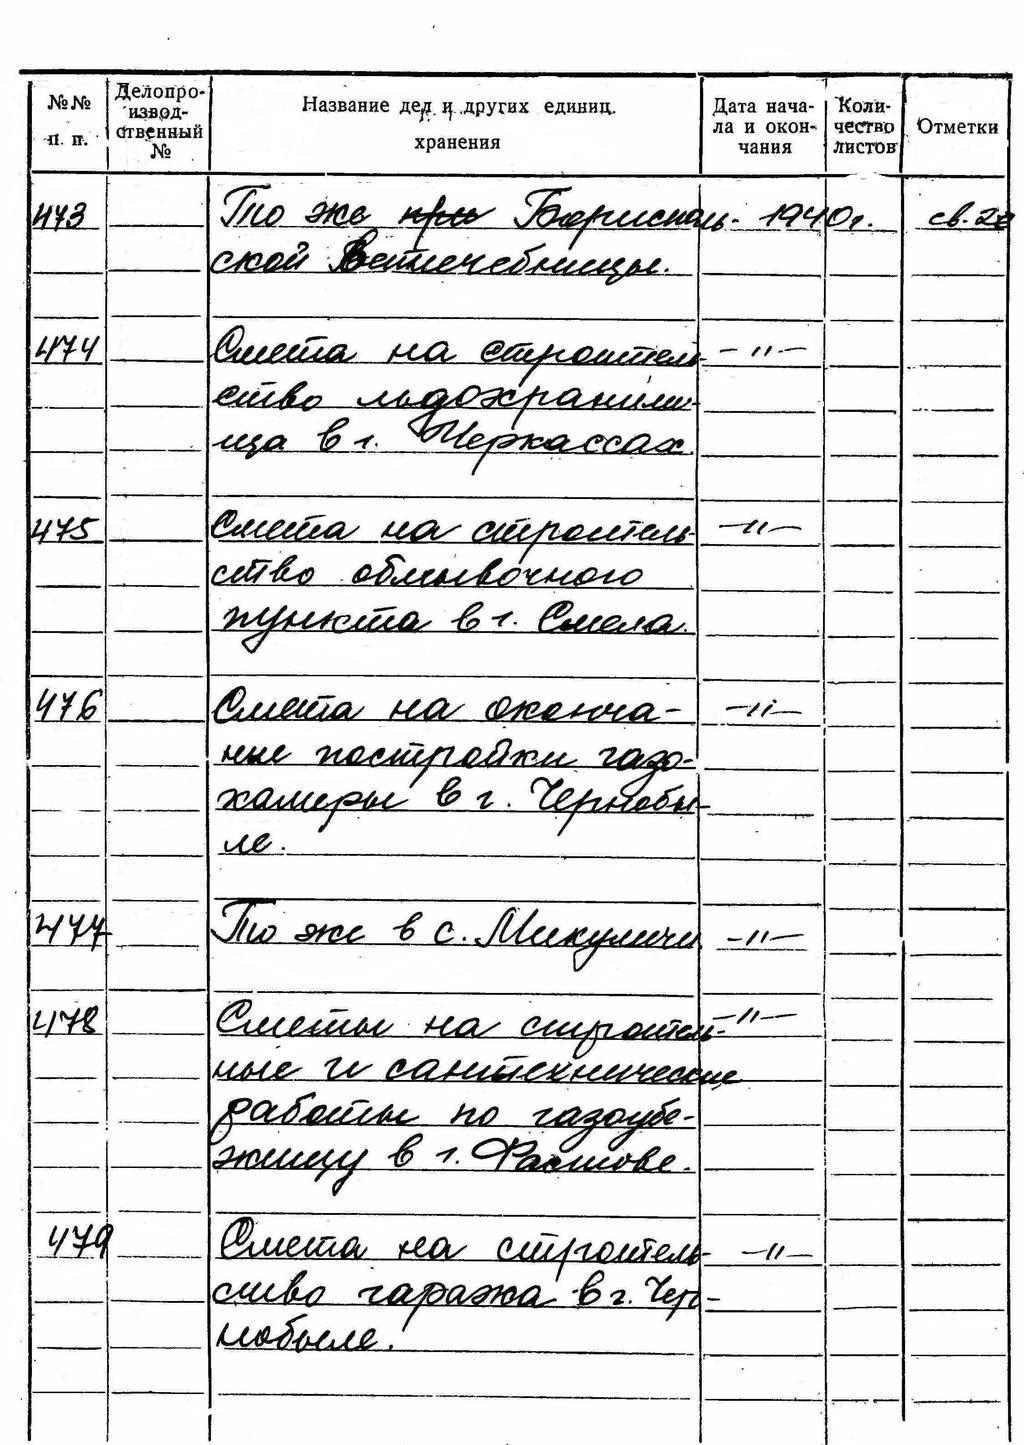 №№ п. п. Делопроизводственный № Название дел и других единиц хранения Дата начала и окончания Количество листов Отметки
473 То же при Борисполь- 1940г. св.
ской Ветлечебницы.
474 Смета на строитель- —〃—
ство льдохранили-
ща в г. Черкассах.
475 Смета на строитель- —〃—
ство обмывочного
пункта в г. Смела.
476 Смета на оконча- —〃—
ние постройки газо-
камеры в г. Чернобы-
ле.
477 То же в с. Микуличи —〃—
478 Сметы на строитель- —〃—
ные и сантехнические
работы по газоубе-
жищу в г. Фастове.
479 Смета на строитель- —〃—
ство гаража в г. Чер-
нобыле.